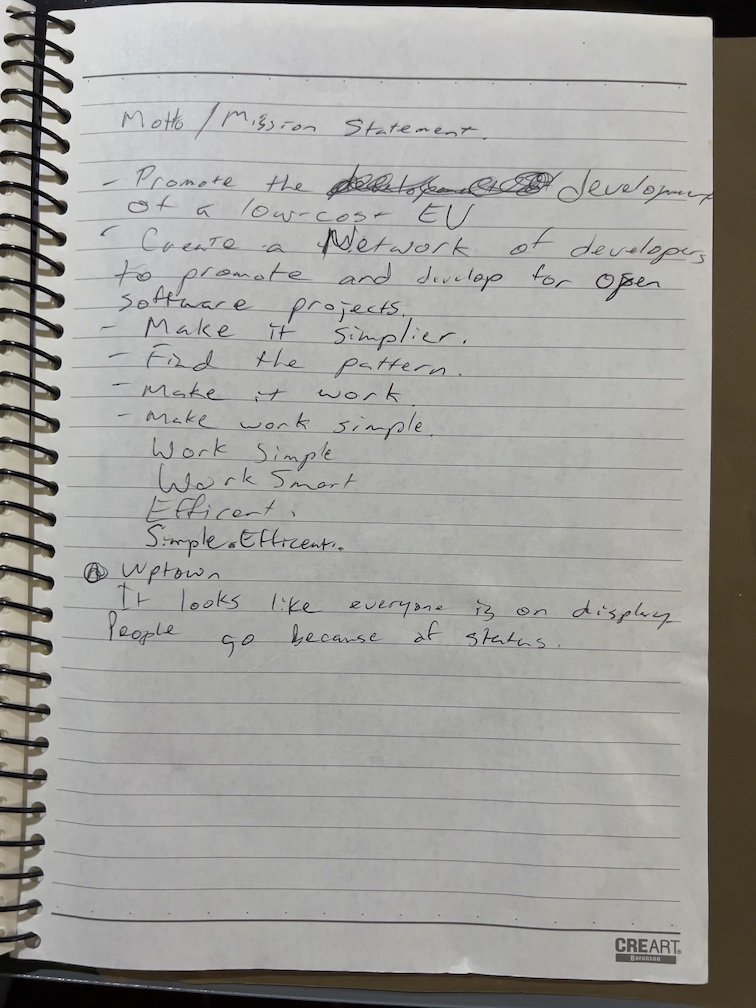 Motto / Mission Statement.
- Promote the development
of a low-cost EV
- Create a Network of developers
to promote and develop for open
software projects.
- Make it simplier.
- Find the pattern.
- Make it work.
- Make work simple.
Work Simple
Work Smart
Efficent.
Simple. Efficent.
Ⓐ Uptown
It looks like everyone is on display
People go because of status.
CREART
Baronson